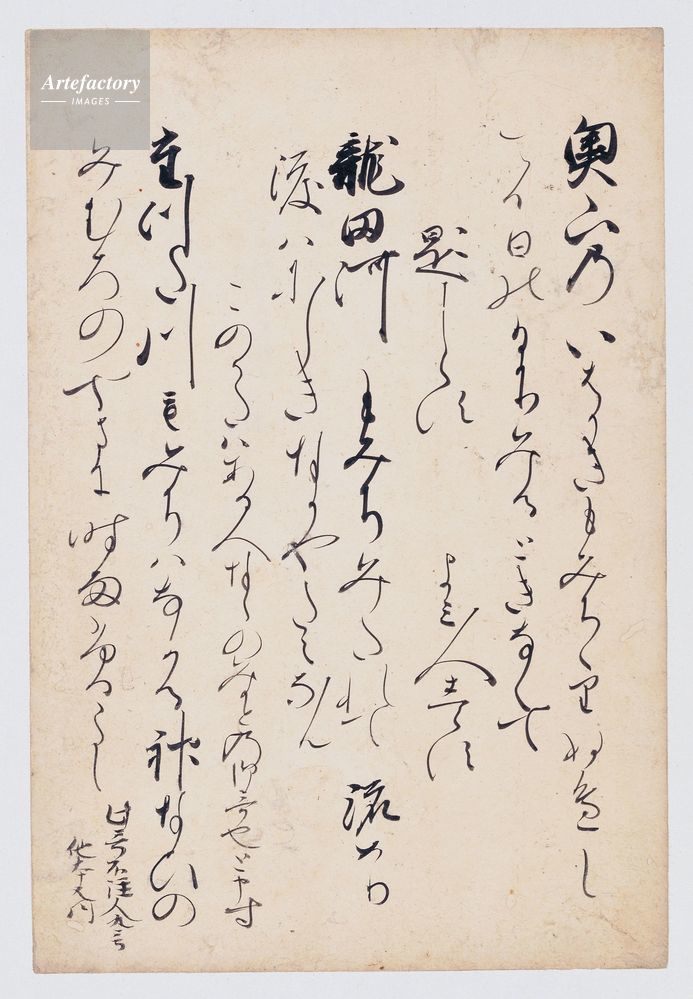 奥山乃いはかきもみちちりぬへし
てる日のひかりみるときなくて
題しらす よみ人しらす
龍田河もみちみたれて流めり
渡ハにしきなかやたえなん
このうたハある人ならのみかとの御哥也と申す
たつた川もみちハなかる神なひの
みむろのやまに時雨ふるらし
此哥不注人丸哥
Artefactory
IMAGES